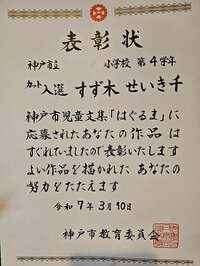 表彰状
神戸市立 小学校 第4学年
カット入選 すず木 せいき千
神戸市児童文集「はぐるま」に
応募されたあなたの作品は
すぐれていましたので表彰いたします
よい作品を描かれた あなたの
努力をたたえます
令和7年3月10日
神戸市教育委員会